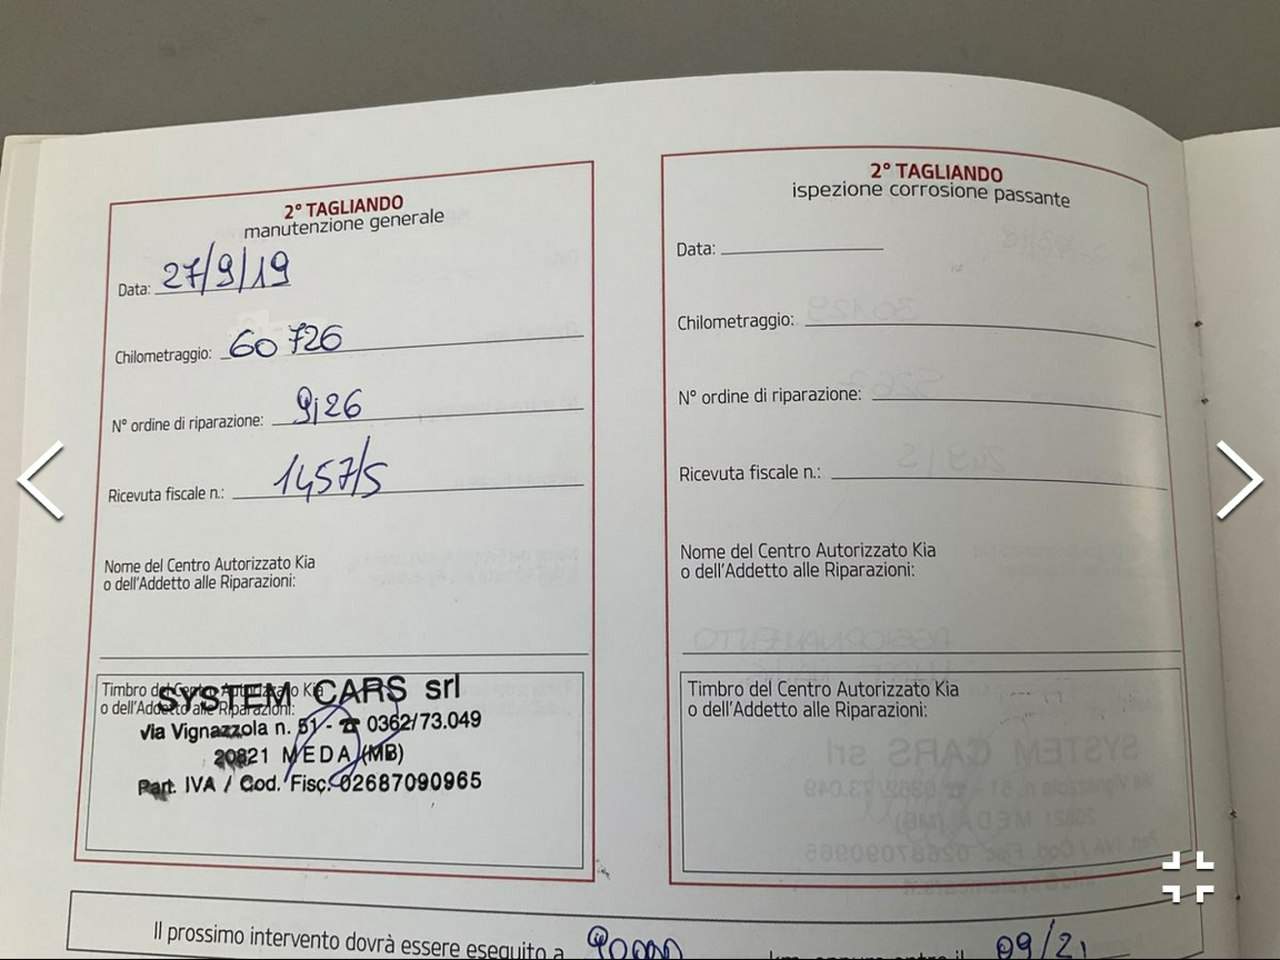 2° TAGLIANDO
manutenzione generale
Data: 27/9/19
Chilometraggio: 60 726
N° ordine di riparazione: 9126
Ricevuta fiscale n.: 1457/5
Nome del Centro Autorizzato Kia
o dell'Addetto alle Riparazioni:
Timbro del Centro Autorizzato Kia
o dell'Addetto alle Riparazioni:
SYSTEM CARS srl
Via Vignazzola n. 51 - ☎ 0362/73.049
20821 MEDA (MB)
Part. IVA / Cod. Fisc. 02687090965
2° TAGLIANDO
ispezione corrosione passante
Data:
Chilometraggio:
N° ordine di riparazione:
Ricevuta fiscale n.:
Nome del Centro Autorizzato Kia
o dell'Addetto alle Riparazioni:
Timbro del Centro Autorizzato Kia
o dell'Addetto alle Riparazioni:
Il prossimo intervento dovrà essere eseguito a 90000 km, oppure entro il 09/21